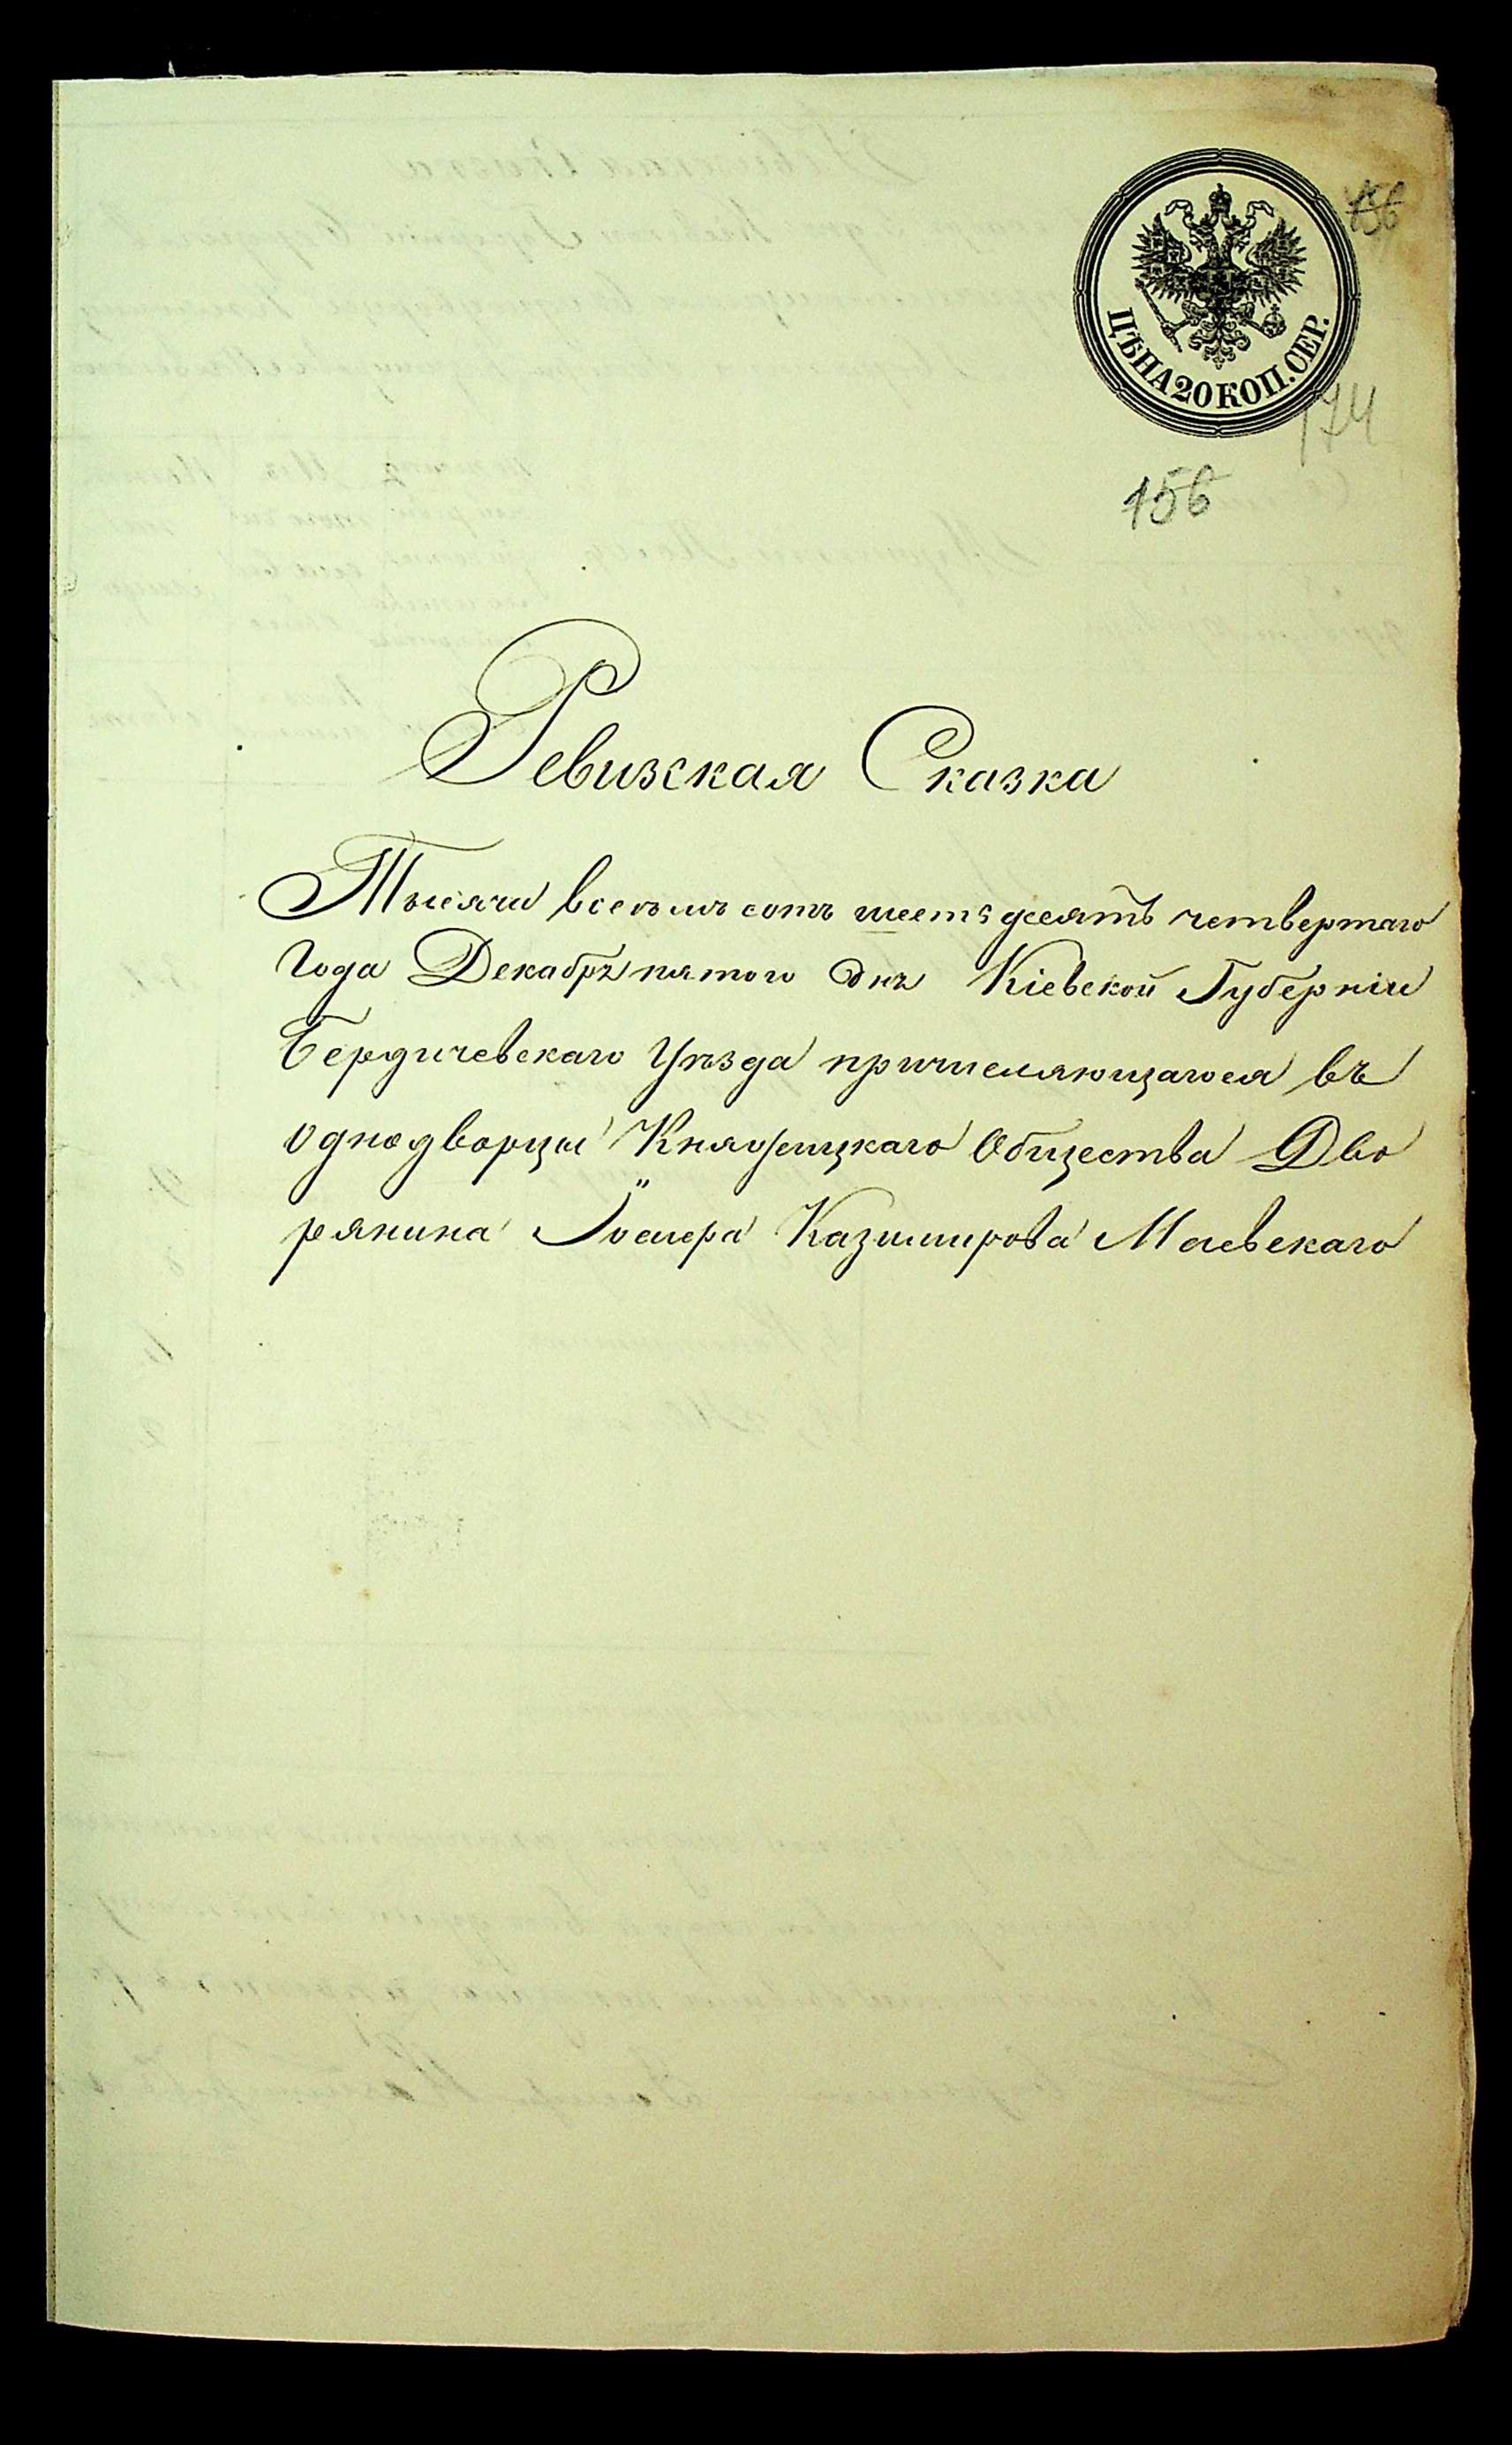 156
ЦѢНА 20 КОП. СЕР.
174
156
Ревизская Сказка
Тысяча восемь сотъ шестьдесятъ четвертаго
Года Декабря пятого дня Кіевской Губерніи
Бердичевскаго Уѣзда причисляющагося въ
однодворцы Княжицкаго Общества Дво
рянина Казимирова Маевскаго